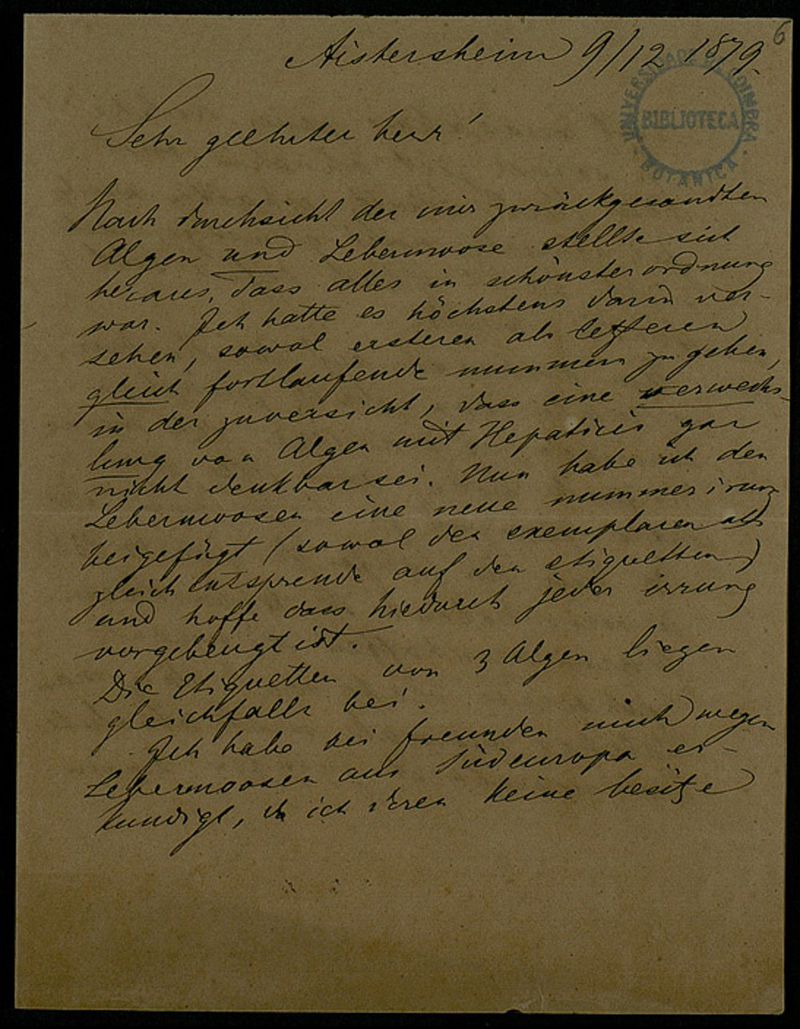 6
Aistersheim 9/12 1879.
UNIVERSIDADE DE COIMBRA
BIBLIOTECA
BOTANICA
Sehr geehrter herr!
Nach durchsicht der mir zurückgesandten
Algen und Lebermoose stellte sich
heraus, dass alles in schönster ordnung
war. Ich hatte es höchstens darin ver-
sehen, sowol ersteren als letzteren
gleich fortlaufende nummern zu geben,
in der zuversicht, dass eine verwechs-
lung von Algen mit Hepaticis gar
nicht denkbar sei. Nun habe ich den
Lebermoosen eine neue nummerirung
beigefügt (sowol den exemplaren als
gleich entsprende auf den etiquetten)
und hoffe dass hiedurch jeder irrung
vorgebeugt ist.
Die Etiquetten von 3 Algen liegen
gleichfalls bei.
Ich habe bei freunden mich wegen
Lebermoosen aus Südeuropa er-
kundigt, da ich deren keine besitze